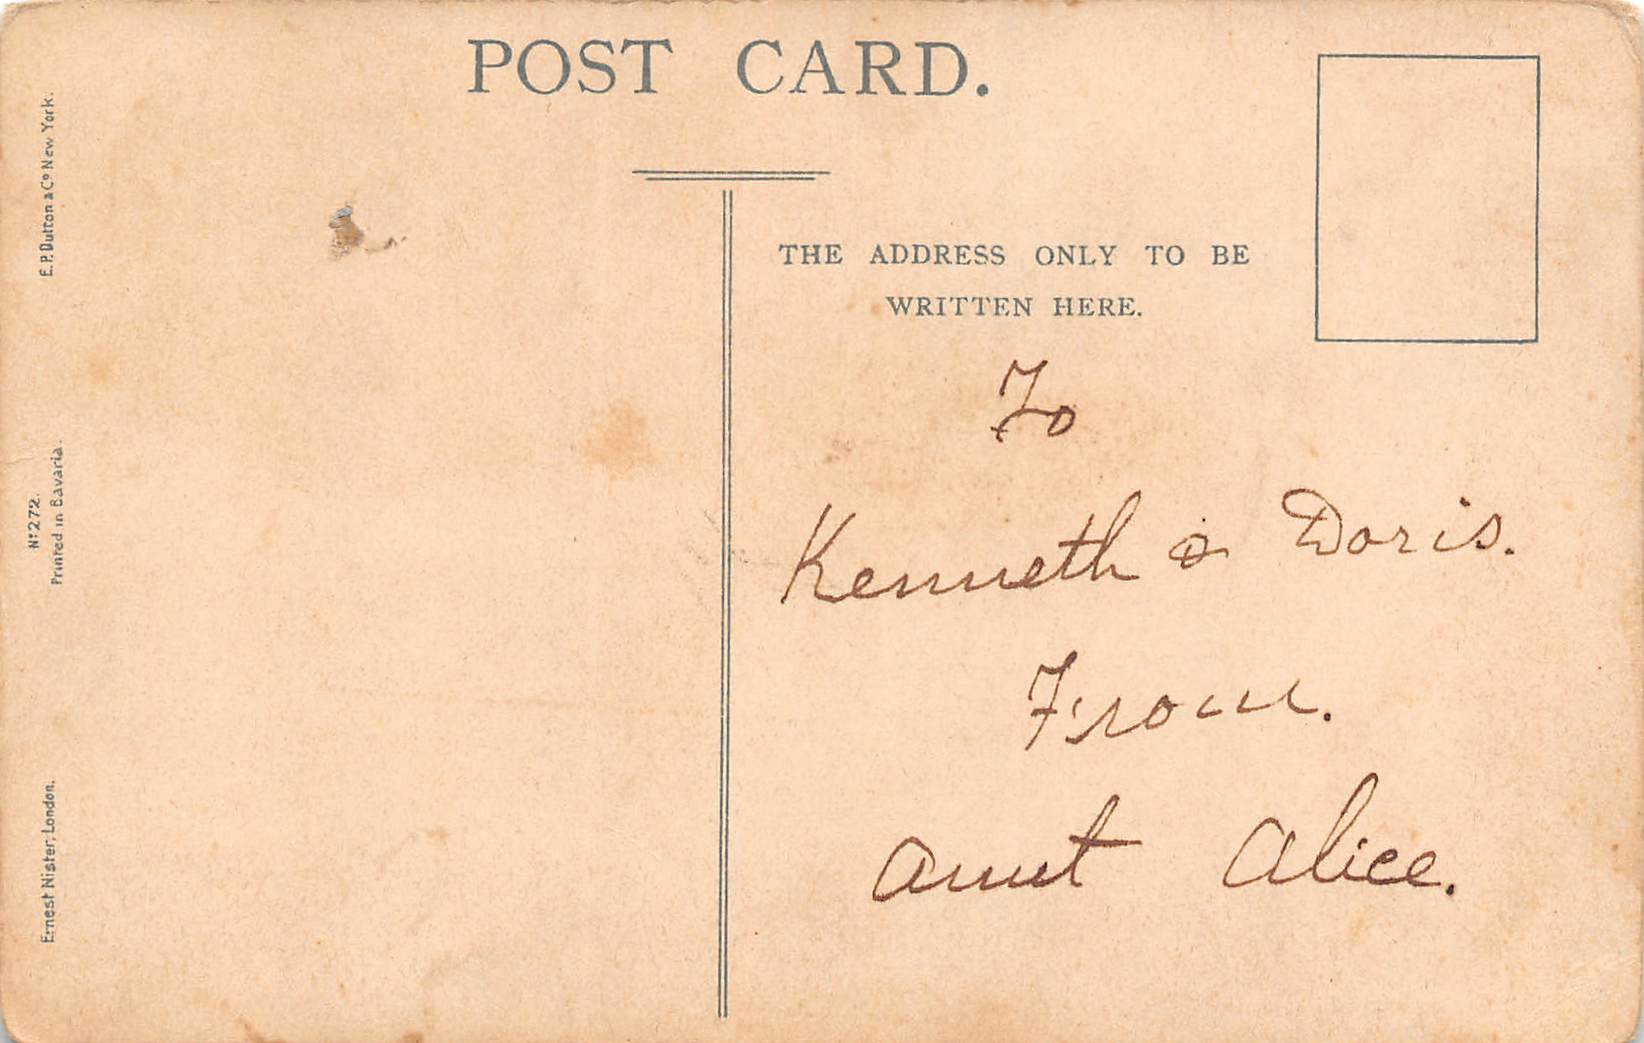 POST CARD.
THE ADDRESS ONLY TO BE
WRITTEN HERE.
To
Kenneth & Doris.
From.
Aunt Alice.
E.P. Dutton & Co New York.
No 272.
Printed in Bavaria.
Ernest Nister, London.